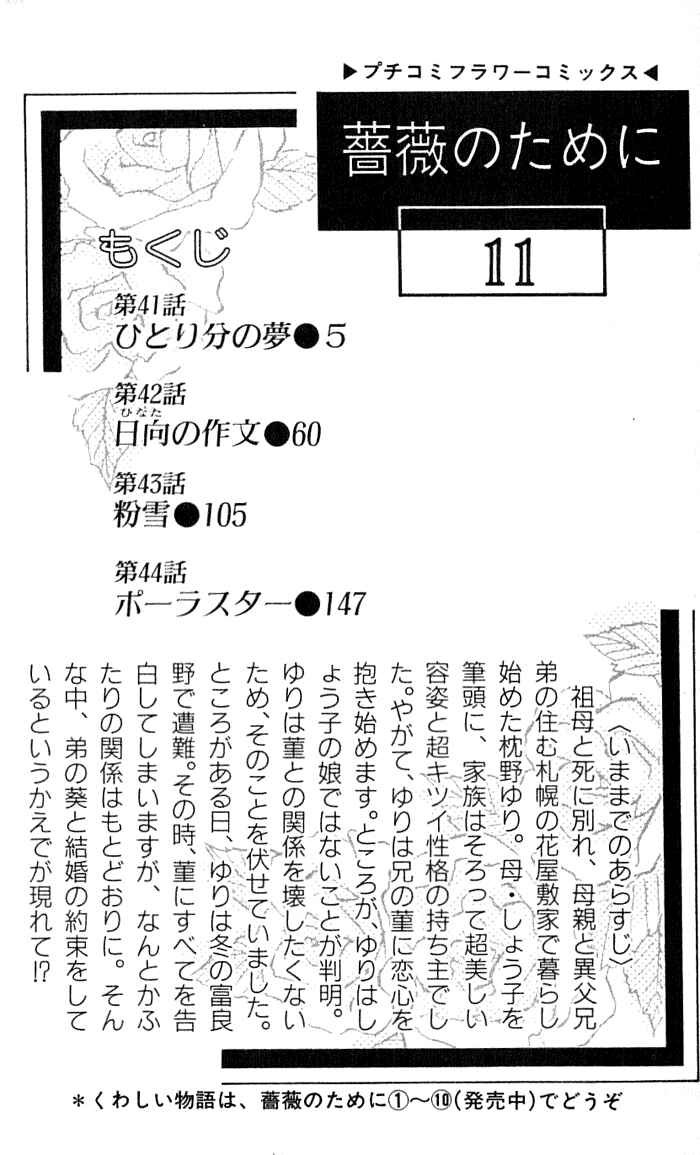 ▶プチコミフラワーコミックス◀
薔薇のために
11
もくじ
第41話
ひとり分の夢●5
第42話
ひなた
日向の作文●60
第43話
粉雪●105
第44話
ポーラスター●147
〈いままでのあらすじ〉
祖母と死に別れ、母親と異父兄
弟の住む札幌の花屋敷家で暮らし
始めた枕野ゆり。母・しょう子を
筆頭に、家族はそろって超美しい
容姿と超キツイ性格の持ち主でし
た。やがて、ゆりは兄の菫に恋心を
抱き始めます。ところが、ゆりはし
ょう子の娘ではないことが判明。
ゆりは菫との関係を壊したくない
ため、そのことを伏せていました。
ところがある日、ゆりは冬の富良
野で遭難。その時、菫にすべてを告
白してしまいますが、なんとかふ
たりの関係はもとどおりに。そん
な中、弟の葵と結婚の約束をして
いるというかえでが現れて!?
＊くわしい物語は、薔薇のために①～⑩(発売中)でどうぞ